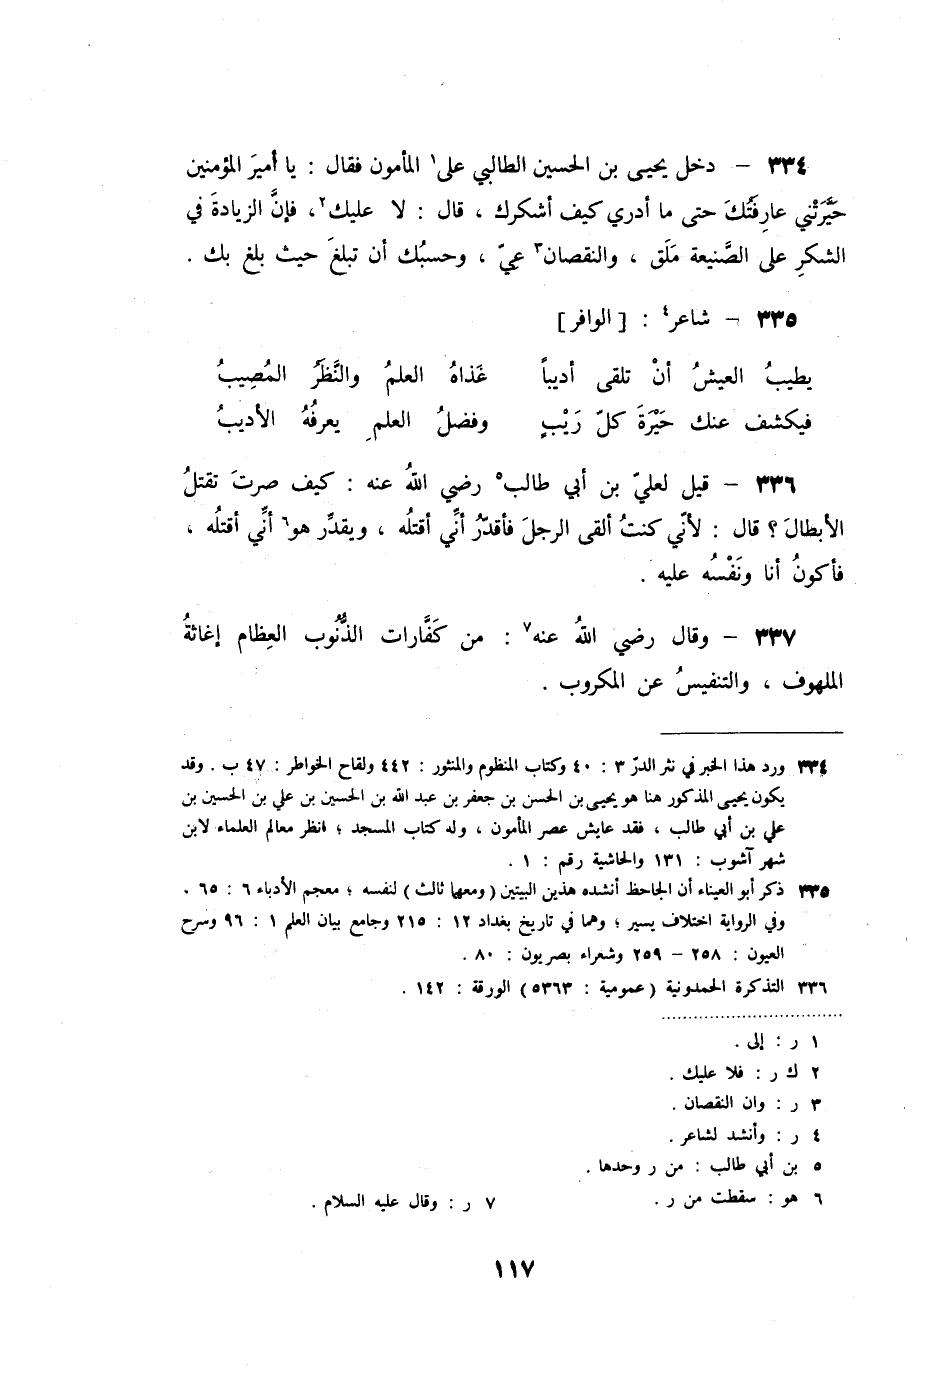 ٣٣٤ – دخل يحيى بن الحسين الطالبي على١ المأمون فقال : يا أميرَ المؤمنين
حَيَّرَتْني عارِفَتُكَ حتى ما أدري كيف أشكرك ، قال : لا عليك٢، فإنَّ الزيادةَ في
الشكرِ على الصَّنيعة مَلَق ، والنقصان٣ عيّ ، وحسبُك أن تبلغَ حيث بلغ بك .
٣٣٥ – شاعر٤ : [ الوافر ]
يطيبُ العيشُ أنْ تلقى أديباً غَذاهُ العلمُ والنَّظَرُ المُصِيبُ
فيكشف عنك حَيْرَةَ كلّ رَيْبٍ وفضلُ العلمِ يعرفُهُ الأديبُ
٣٣٦ – قيل لعليّ بن أبي طالب٥ رضي اللهُ عنه : كيف صرتَ تقتلُ
الأبطالَ ؟ قال : لأنّي كنتُ ألقى الرجلَ فأقدّرُ أنِّي أقتلُه ، ويقدِّر هو٦ أنِّي أقتلُه ،
فأكونُ أنا ونَفْسُه عليه .
٣٣٧ – وقال رضي اللهُ عنه٧ : من كَفَّارات الذُّنُوب العِظام إغاثةُ
الملهوف ، والتنفيسُ عن المكروب .
٣٣٤ ورد هذا الخبر في نثر الدرّ ٣ : ٤٠ وكتاب المنظوم والمنثور : ٤٤٢ ولقاح الخواطر : ٤٧ ب . وقد
يكون يحيى المذكور هنا هو يحيى بن الحسن بن جعفر بن عبد الله بن الحسين بن علي بن الحسين بن
علي بن أبي طالب ، فقد عايش عصر المأمون ، وله كتاب المسجد ؛ انظر معالم العلماء لابن
شهر آشوب : ١٣١ والحاشية رقم : ١ .
٣٣٥ ذكر أبو العيناء أن الجاحظ أنشده هذين البيتين ( ومعها ثالث ) لنفسه ؛ معجم الأدباء ٦ : ٦٥ .
وفي الرواية اختلاف يسير ؛ وهما في تاريخ بغداد ١٢ : ٢١٥ وجامع بيان العلم ١ : ٩٦ وسرح
العيون : ٢٥٨ – ٢٥٩ وشعراء بصريون : ٨٠ .
٣٣٦ التذكرة الحمدونية ( عمومية : ٥٣٦٣ ) الورقة : ١٤٢ .
١ ر : إلى .
٢ ك ر : فلا عليك .
٣ ر : وان النقصان .
٤ ر : وأنشد لشاعر .
٥ بن أبي طالب : من ر وحدها .
٦ هو : سقطت من ر . ٧ ر : وقال عليه السلام .
١١٧